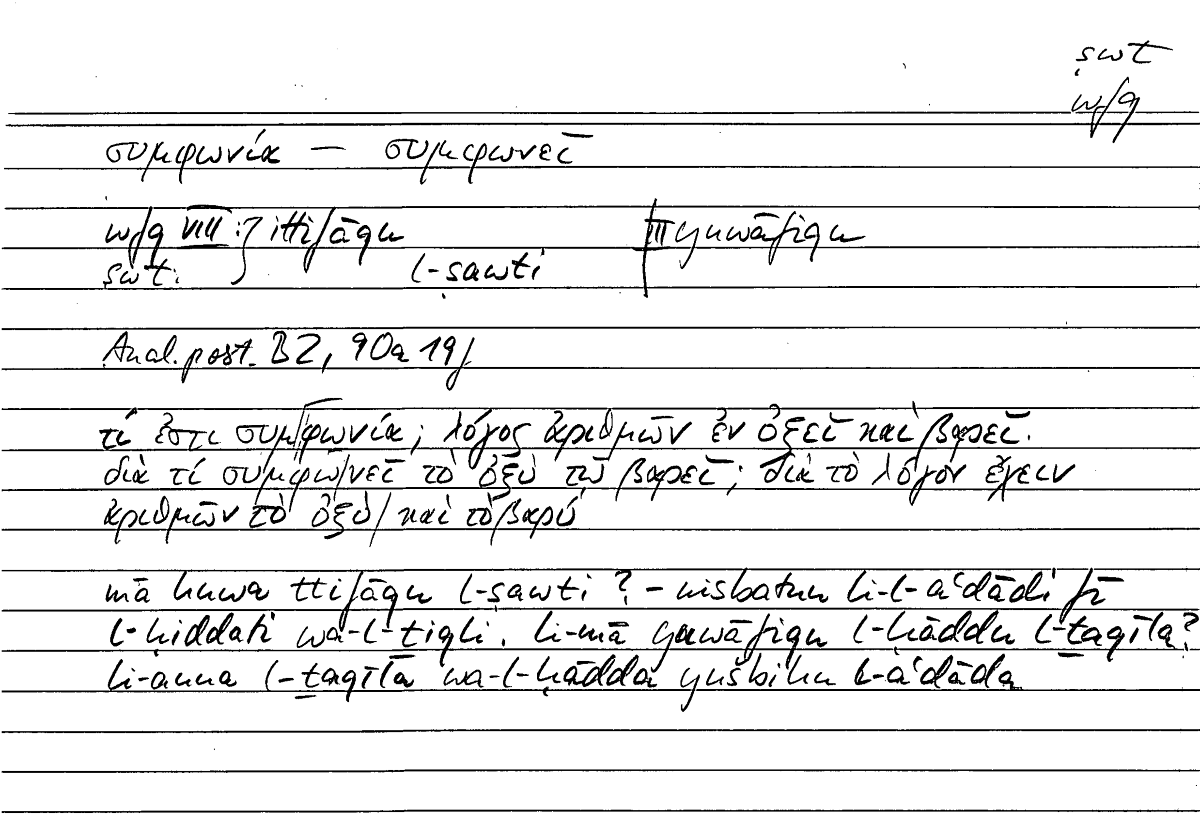 ṣwt
wfq
συμφωνία — συμφωνεῖ
wfq VIII :} ittifāqu III yuwāfiqu
ṣwt: l-ṣawti
Anal. post. B2, 90a 19f
τί ἐστι συμφωνία; λόγος ἀριθμῶν ἐν ὀξεῖ καὶ βαρεῖ.
διὰ τί συμφωνεῖ τὸ ὀξὺ τῷ βαρεῖ; διὰ τὸ λόγον ἔχειν
ἀριθμῶν τὸ ὀξὺ καὶ τὸ βαρύ
mā huwa ttifāqu l-ṣawti? – nisbatun li-l-aʿdādi fī
l-ḥiddati wa-l-ṯiqli. li-mā yuwāfiqu l-ḥāddu l-ṯaqīla?
li-anna l-ṯaqīla wa-l-ḥādda yušbihu l-aʿdāda